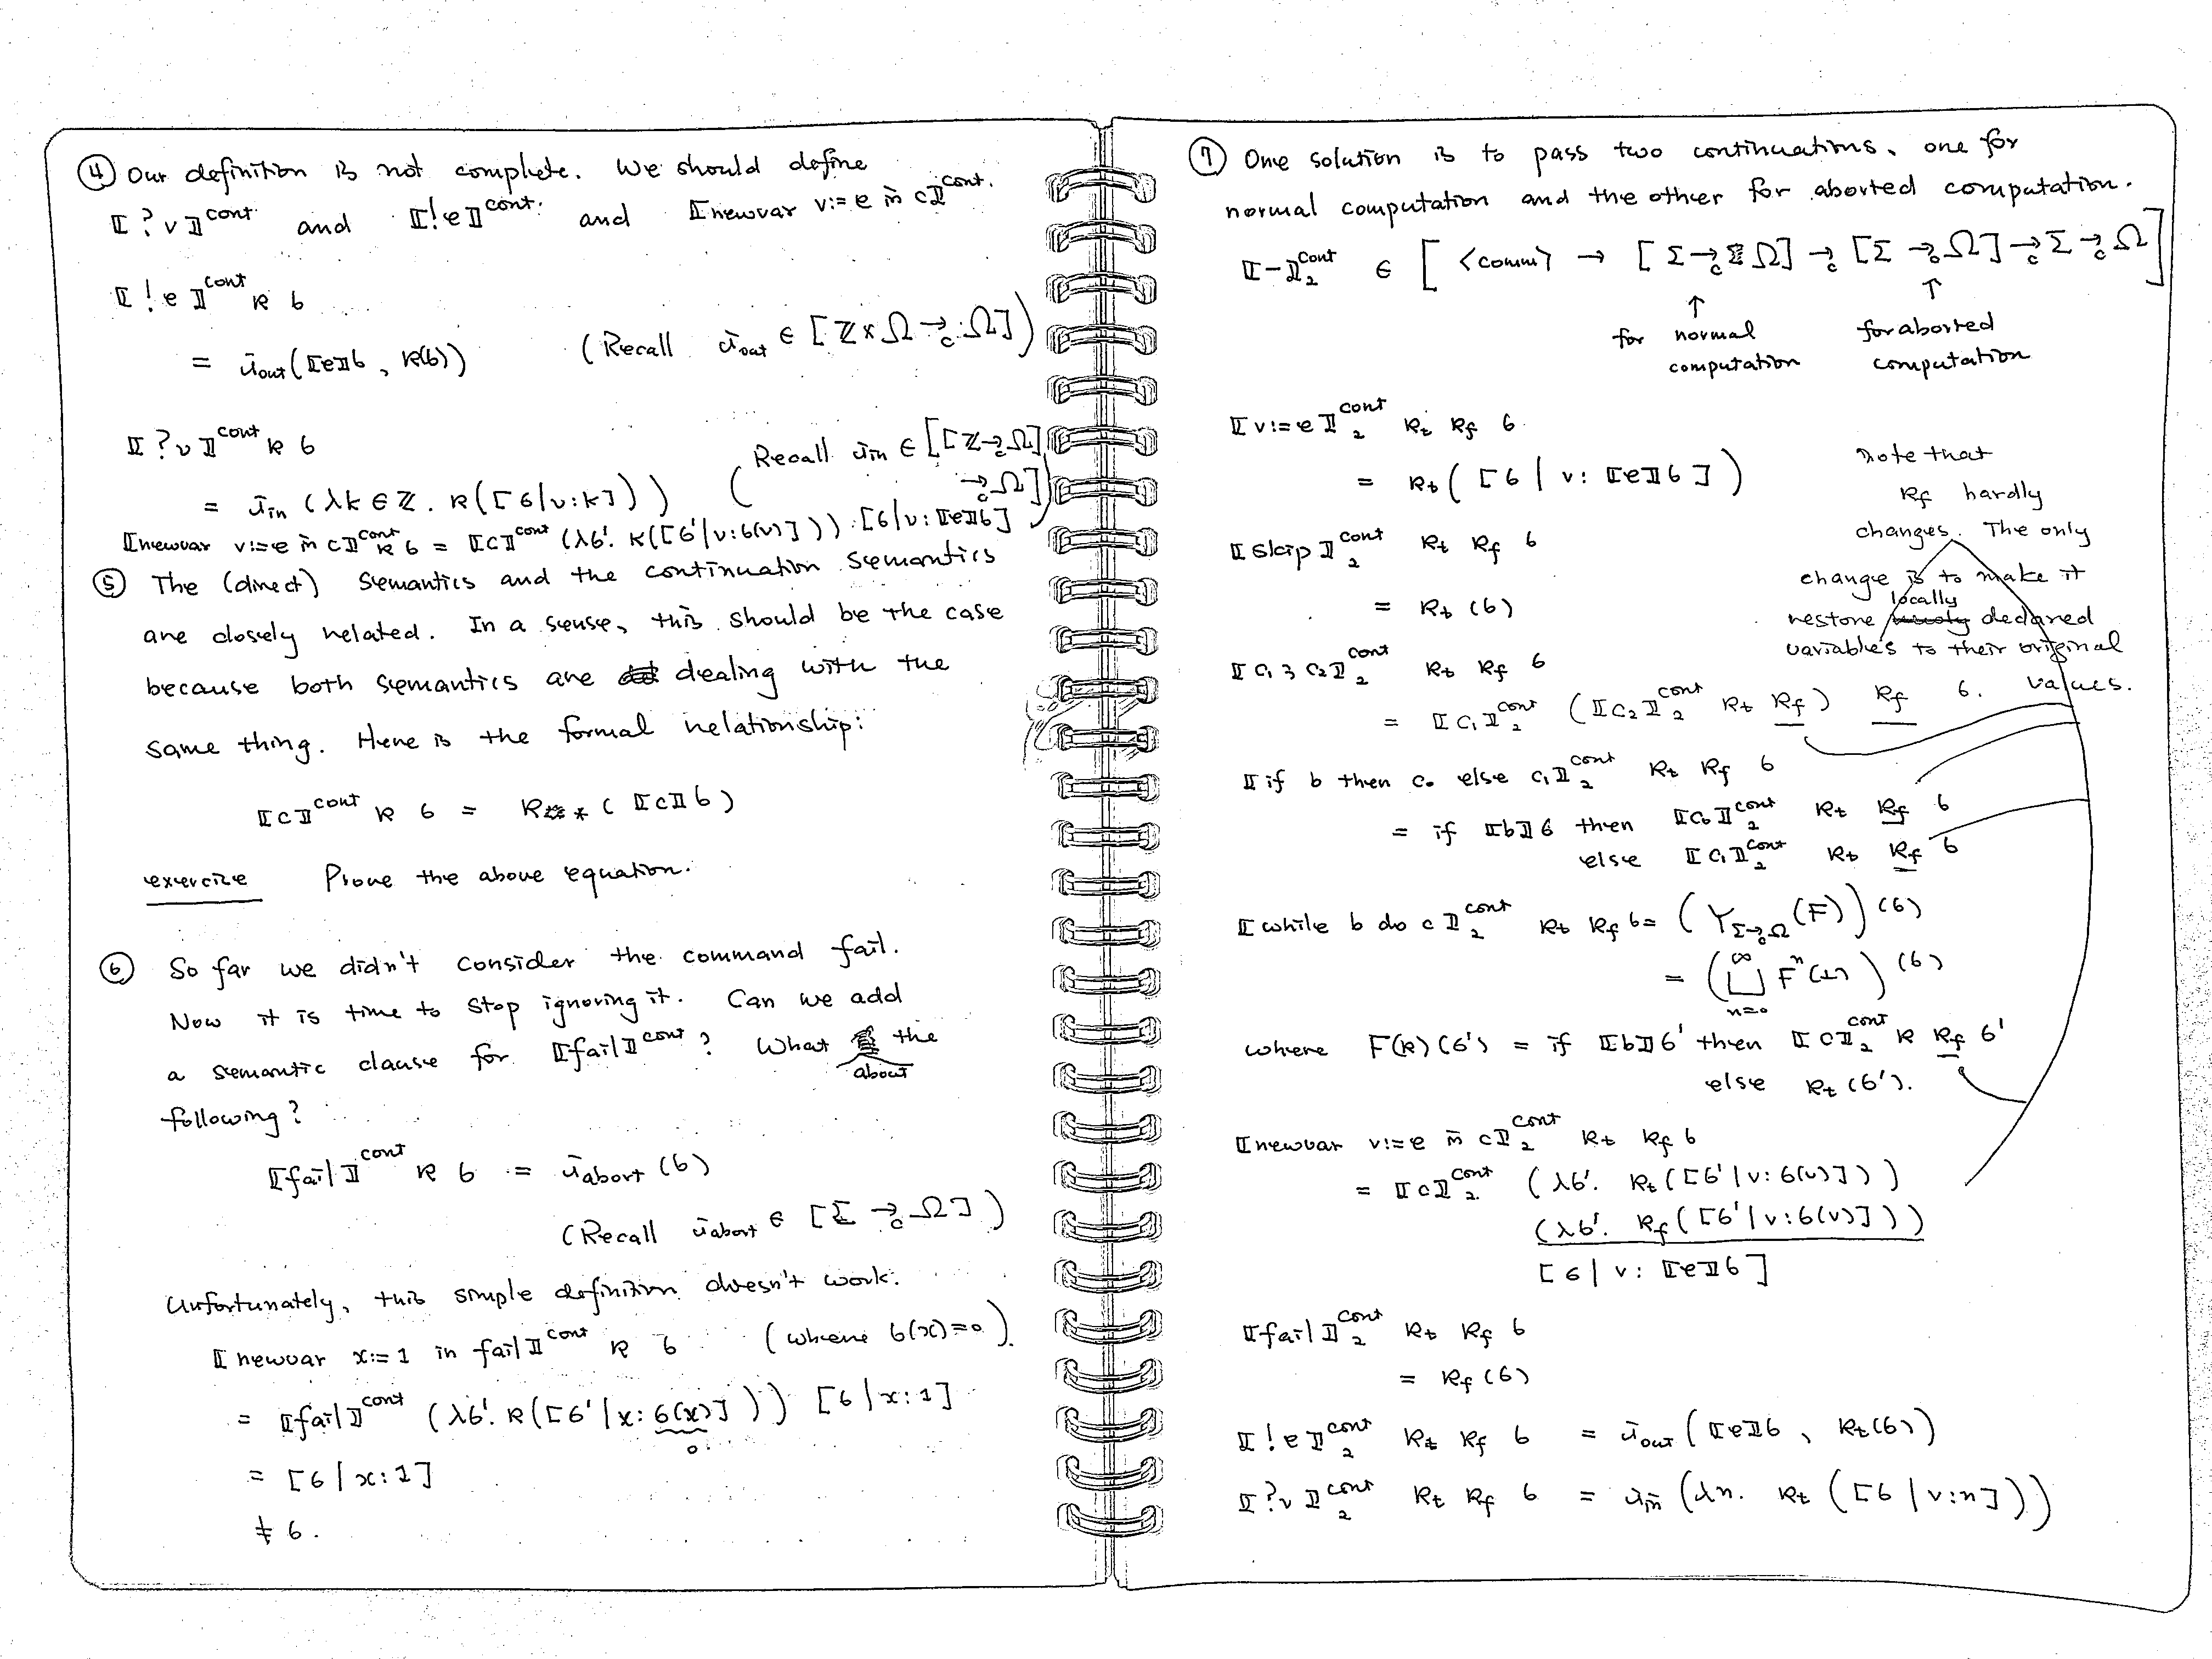 ④ Our definition is not complete. We should define
⟦?v⟧^cont and ⟦!e⟧^cont and ⟦newvar v:=e in c⟧^cont.
⟦!e⟧^cont κ σ
= ι_out(⟦e⟧σ, κ(σ)) (Recall ι_out ∈ [ℤ×Ω →_c Ω])
⟦?v⟧^cont κ σ
= ι_in (λk∈ℤ. κ([σ|v:k])) (Recall ι_in ∈ [[ℤ→_c Ω] →_c Ω])
⟦newvar v:=e in c⟧^cont κ σ = ⟦c⟧^cont (λσ'. κ([σ'|v:σ(v)])) [σ|v:⟦e⟧σ]
⑤ The (direct) semantics and the continuation semantics
are closely related. In a sense, this should be the case
because both semantics are dealing with the
same thing. Here is the formal relationship:
⟦c⟧^cont κ σ = κ_* (⟦c⟧σ)
exercise Prove the above equation.
⑥ So far we didn't consider the command fail.
Now it is time to stop ignoring it. Can we add
a semantic clause for ⟦fail⟧^cont? What about the
following?
⟦fail⟧^cont κ σ = ι_abort(σ)
(Recall ι_abort ∈ [Σ →_c Ω])
Unfortunately, this simple definition doesn't work.
⟦newvar x:=1 in fail⟧^cont κ σ (where σ(x)=0)
= ⟦fail⟧^cont (λσ'. κ([σ'|x:σ(x)])) [σ|x:1]
0
= [σ|x:1]
≠ σ.
⑦ One solution is to pass two continuations, one for
normal computation and the other for aborted computation.
⟦-⟧_2^cont ∈ [<comm> → [Σ →_c Ω] →_c [Σ →_c Ω] →_c Σ →_c Ω]
↑ ↑
for normal computation
for aborted computation
⟦v:=e⟧_2^cont κ_t κ_f σ
= κ_t([σ|v:⟦e⟧σ])
Note that
κ_f hardly
changes. The only
change is to make it
restore locally declared
variables to their original
values.
⟦skip⟧_2^cont κ_t κ_f σ
= κ_t(σ)
⟦c₁;c₂⟧_2^cont κ_t κ_f σ
= ⟦c₁⟧_2^cont (⟦c₂⟧_2^cont κ_t κ_f) κ_f σ.
⟦if b then c₀ else c₁⟧_2^cont κ_t κ_f σ
= if ⟦b⟧σ then ⟦c₀⟧_2^cont κ_t κ_f σ
else ⟦c₁⟧_2^cont κ_t κ_f σ
⟦while b do c⟧_2^cont κ_t κ_f σ = (Y_{Σ→_c Ω}(F))(σ)
= (⊔_{n=0}^∞ F^n(⊥))(σ)
where F(κ)(σ') = if ⟦b⟧σ' then ⟦c⟧_2^cont κ κ_f σ'
else κ_t(σ').
⟦newvar v:=e in c⟧_2^cont κ_t κ_f σ
= ⟦c⟧_2^cont (λσ'. κ_t([σ'|v:σ(v)]))
(λσ'. κ_f([σ'|v:σ(v)]))
[σ|v:⟦e⟧σ]
⟦fail⟧_2^cont κ_t κ_f σ
= κ_f(σ)
⟦!e⟧_2^cont κ_t κ_f σ = ι_out(⟦e⟧σ, κ_t(σ))
⟦?v⟧_2^cont κ_t κ_f σ = ι_in(λn. κ_t([σ|v:n]))